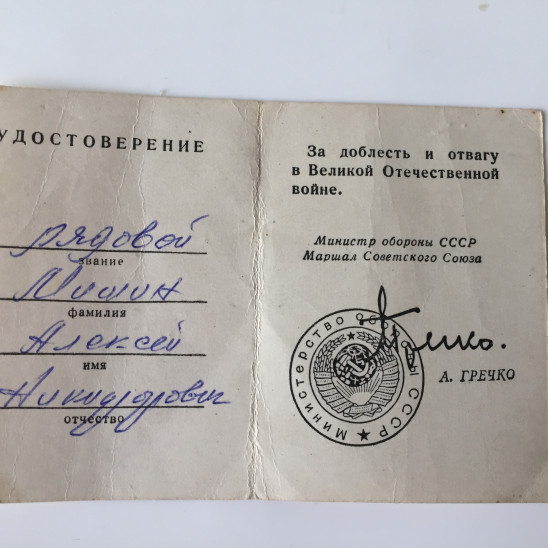 УДОСТОВЕРЕНИЕ
рядовой
звание
Мишин
фамилия
Алексей
имя
Никифорович
отчество
За доблесть и отвагу
в Великой Отечественной
войне.
Министр обороны СССР
Маршал Советского Союза
А. ГРЕЧКО
Министерство Обороны СССР